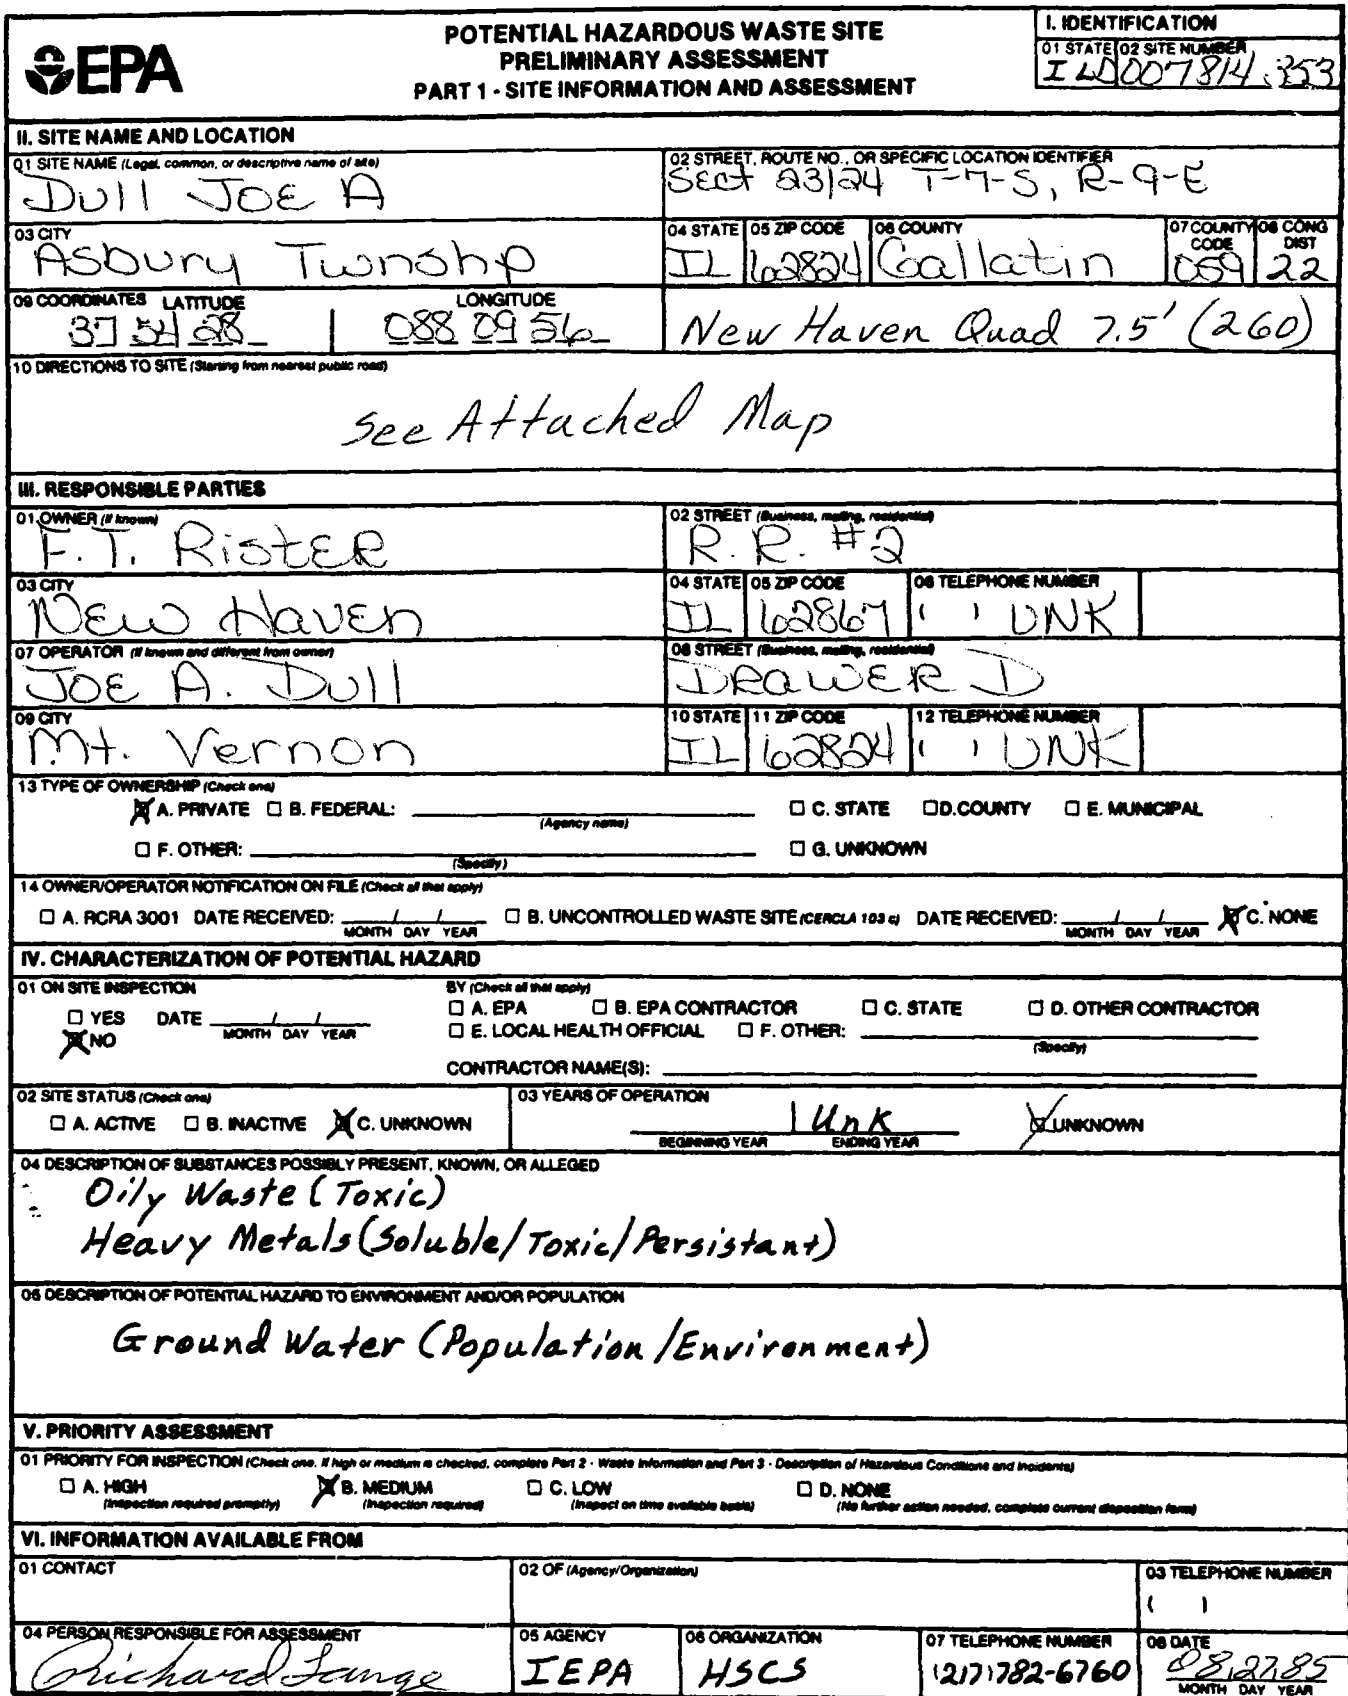 EPA
POTENTIAL HAZARDOUS WASTE SITE
PRELIMINARY ASSESSMENT
PART 1 - SITE INFORMATION AND ASSESSMENT
I. IDENTIFICATION
01 STATE 02 SITE NUMBER
ILD007814353
II. SITE NAME AND LOCATION
01 SITE NAME (Legal, common, or descriptive name of site)
Dull JOE A
02 STREET, ROUTE NO., OR SPECIFIC LOCATION IDENTIFIER
SEct 23/24 T-7-S, R-9-E
03 CITY
Asbury Twnshp
04 STATE
IL
05 ZIP CODE
62824
06 COUNTY
Gallatin
07 COUNTY CODE
059
08 CONG DIST
22
09 COORDINATES LATITUDE LONGITUDE
37 54 28 088 09 56
New Haven Quad 7.5' (260)
10 DIRECTIONS TO SITE (Starting from nearest public road)
See Attached Map
III. RESPONSIBLE PARTIES
01 OWNER (If known)
F.T. RistER
02 STREET (Business, mailing, residential)
R.R. #2
03 CITY
NEW HAVEN
04 STATE
IL
05 ZIP CODE
62867
06 TELEPHONE NUMBER
( ) UNK
07 OPERATOR (If known and different from owner)
JOE A. Dull
08 STREET (Business, mailing, residential)
DRAWER D
09 CITY
Mt. Vernon
10 STATE
IL
11 ZIP CODE
62824
12 TELEPHONE NUMBER
( ) UNK
13 TYPE OF OWNERSHIP (Check one)
☒ A. PRIVATE ☐ B. FEDERAL: ____ (Agency name) ☐ C. STATE ☐ D. COUNTY ☐ E. MUNICIPAL
☐ F. OTHER: ____ (Specify) ☐ G. UNKNOWN
14 OWNER/OPERATOR NOTIFICATION ON FILE (Check all that apply)
☐ A. RCRA 3001 DATE RECEIVED: __/__/__ ☐ B. UNCONTROLLED WASTE SITE (CERCLA 103 c) DATE RECEIVED: __/__/__ ☒ C. NONE
MONTH DAY YEAR MONTH DAY YEAR
IV. CHARACTERIZATION OF POTENTIAL HAZARD
01 ON SITE INSPECTION
☐ YES DATE __/__/__
☒ NO MONTH DAY YEAR
BY (Check all that apply)
☐ A. EPA ☐ B. EPA CONTRACTOR ☐ C. STATE ☐ D. OTHER CONTRACTOR
☐ E. LOCAL HEALTH OFFICIAL ☐ F. OTHER: ____
(Specify)
CONTRACTOR NAME(S): ____
02 SITE STATUS (Check one)
☐ A. ACTIVE ☐ B. INACTIVE ☒ C. UNKNOWN
03 YEARS OF OPERATION
| Unk ☒ UNKNOWN
BEGINNING YEAR ENDING YEAR
04 DESCRIPTION OF SUBSTANCES POSSIBLY PRESENT, KNOWN, OR ALLEGED
Oily Waste (Toxic)
Heavy Metals (Soluble/Toxic/Persistant)
05 DESCRIPTION OF POTENTIAL HAZARD TO ENVIRONMENT AND/OR POPULATION
Ground Water (Population/Environment)
V. PRIORITY ASSESSMENT
01 PRIORITY FOR INSPECTION (Check one. If high or medium is checked, complete Part 2 - Waste Information and Part 3 - Description of Hazardous Conditions and Incidents)
☐ A. HIGH ☒ B. MEDIUM ☐ C. LOW ☐ D. NONE
(Inspection required promptly) (Inspection required) (Inspect on time available basis) (No further action needed, complete current disposition form)
VI. INFORMATION AVAILABLE FROM
01 CONTACT
02 OF (Agency/Organization)
03 TELEPHONE NUMBER
( )
04 PERSON RESPONSIBLE FOR ASSESSMENT
Richard Lange
05 AGENCY
IEPA
06 ORGANIZATION
HSCS
07 TELEPHONE NUMBER
(217) 782-6760
08 DATE
08,27,85
MONTH DAY YEAR